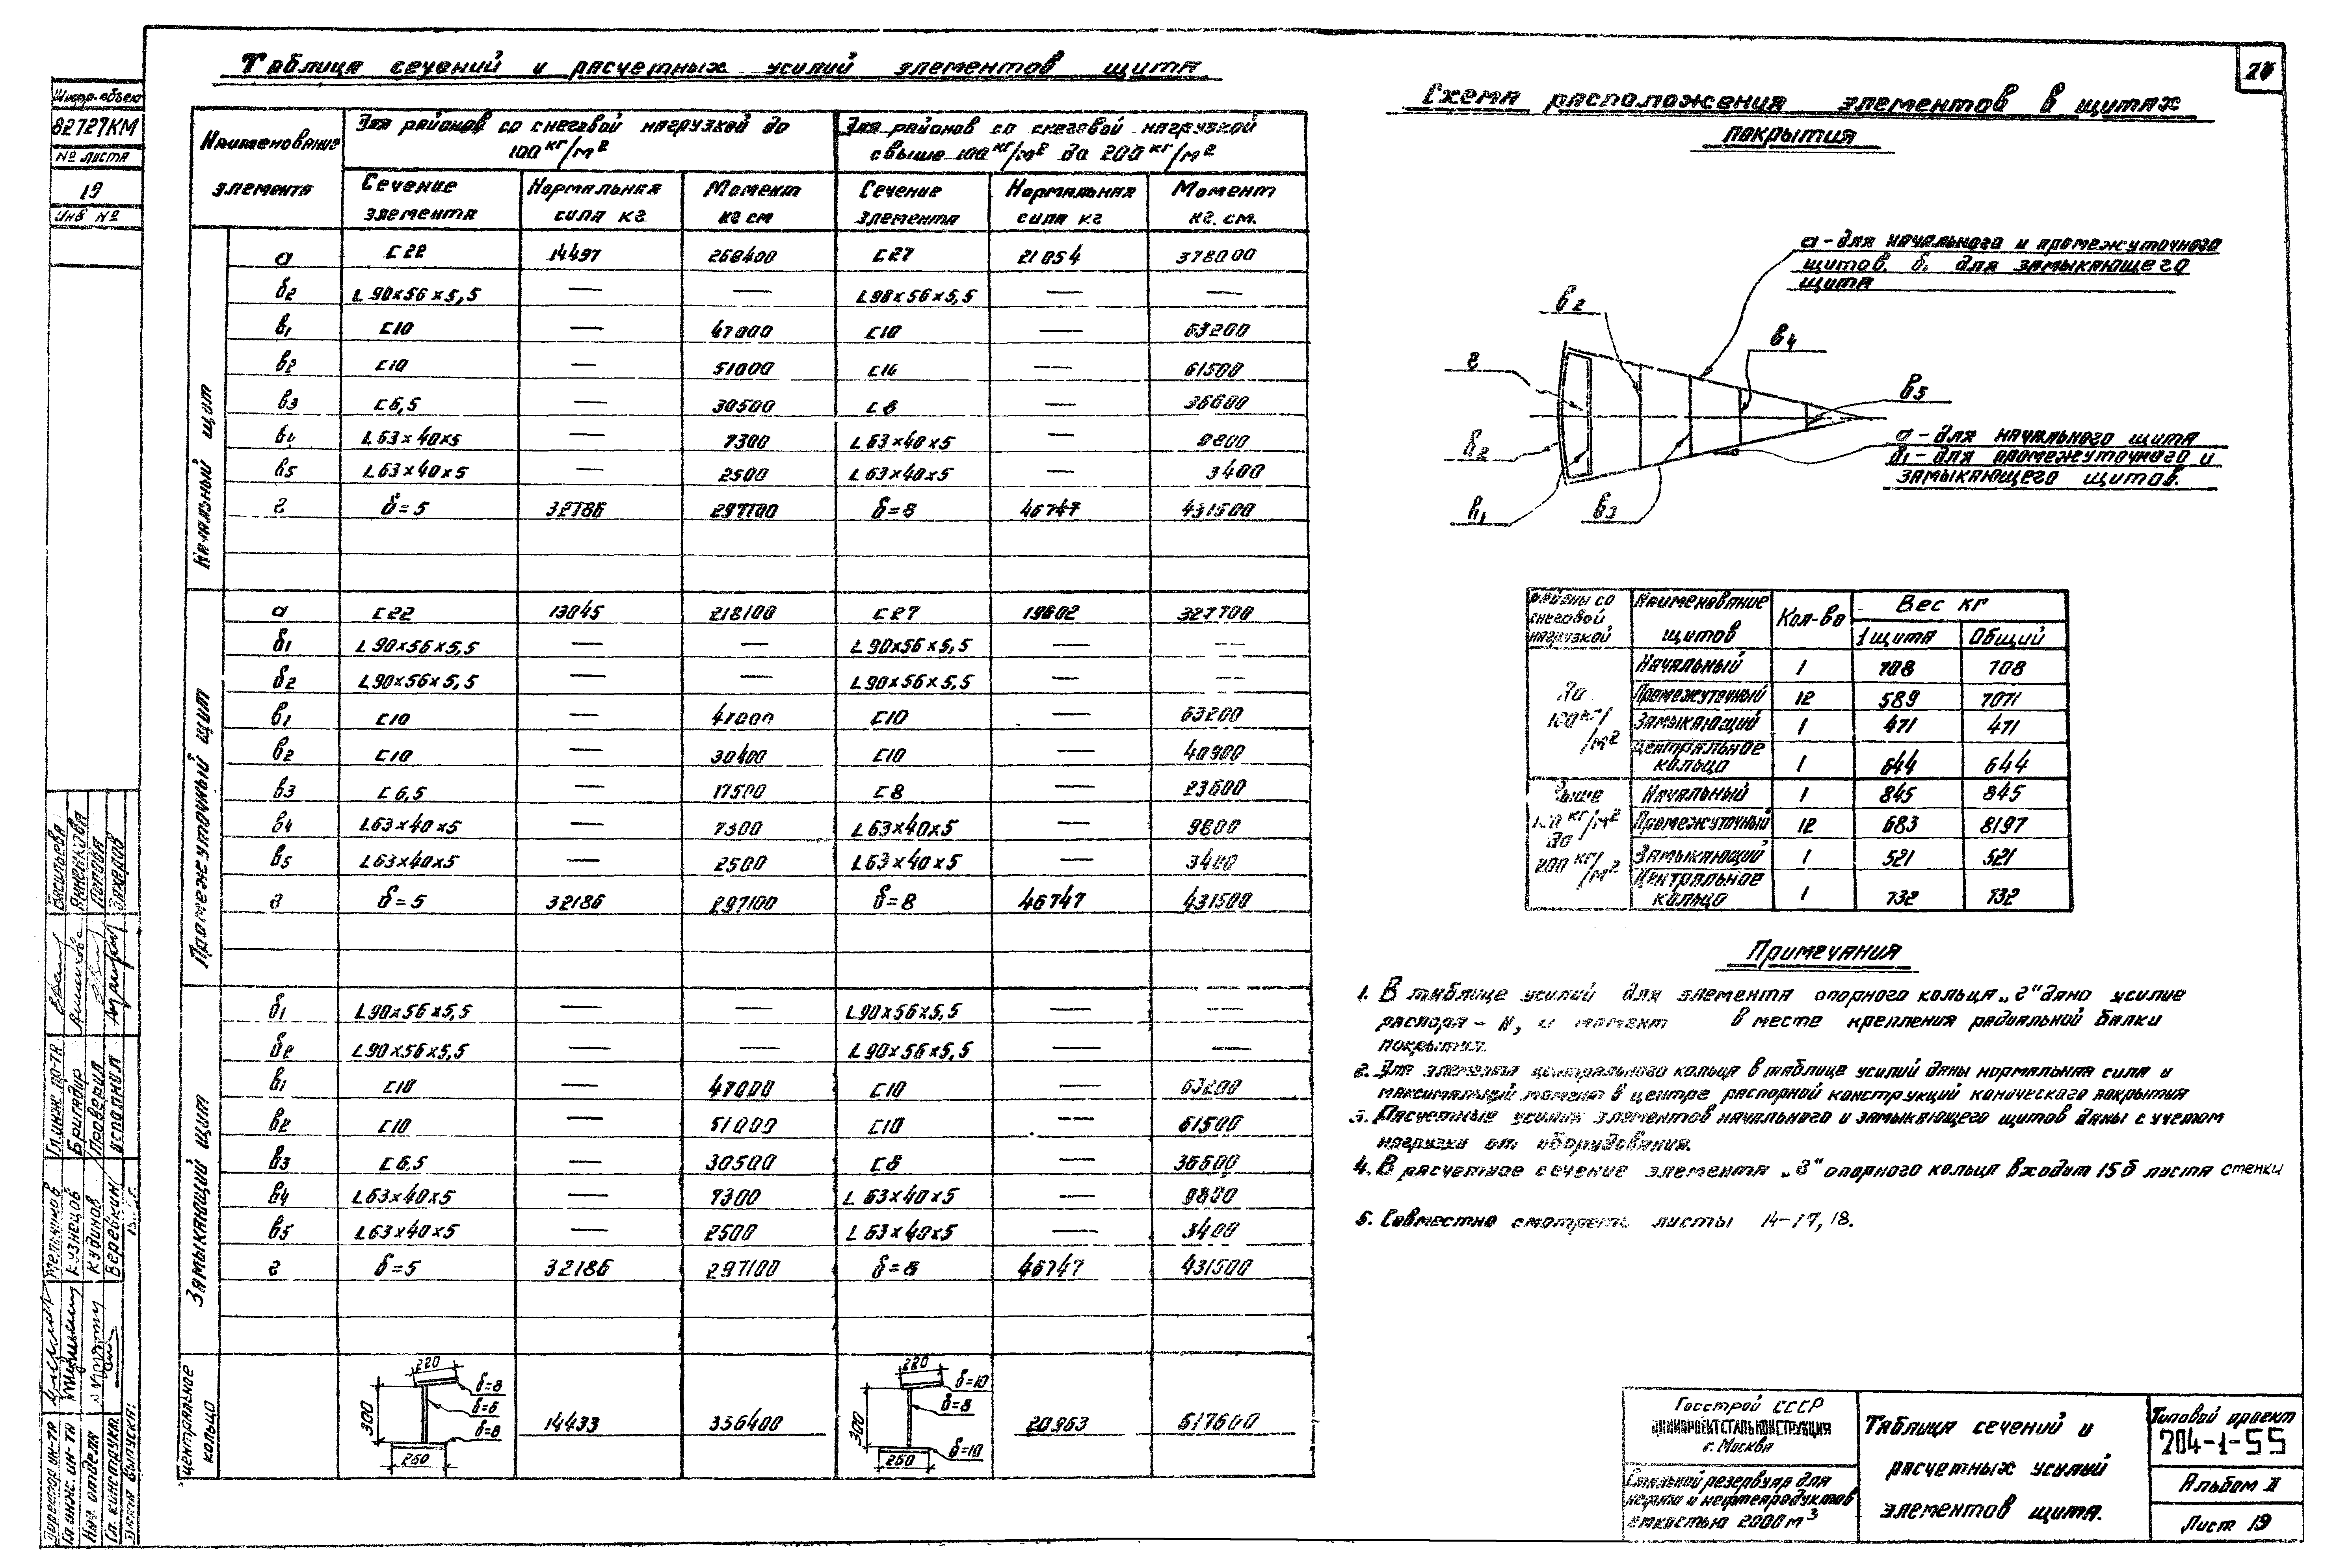 Таблица сечений и расчетных усилий элементов щита
26
Шифр. объек
82727КМ
№ листа
19
Инв №
Наименование элемента
Для районов со снеговой нагрузкой до 100 кг/м²
Для районов со снеговой нагрузкой свыше 100 кг/м² до 200 кг/м²
Сечение элемента | Нормальная сила кг. | Момент кг см | Сечение элемента | Нормальная сила кг | Момент кг. см.
Начальный щит
а | [22 | 14497 | 268400 | [27 | 21054 | 378000
б2 | L 90×56×5,5 | — | — | L 90×56×5,5 | — | —
в1 | [10 | — | 47000 | [10 | — | 63200
в2 | [10 | — | 51000 | [10 | — | 61500
в3 | [6,5 | — | 30500 | [8 | — | 36600
в4 | L 63×40×5 | — | 7300 | L 63×40×5 | — | 9800
в5 | L 63×40×5 | — | 2500 | L 63×40×5 | — | 3400
г | δ=5 | 32186 | 297100 | δ=8 | 46747 | 431500
Промежуточный щит
а | [22 | 13045 | 218100 | [27 | 19602 | 327700
б1 | L 90×56×5,5 | — | — | L 90×56×5,5 | — | —
б2 | L 90×56×5,5 | — | — | L 90×56×5,5 | — | —
в1 | [10 | — | 47000 | [10 | — | 63200
в2 | [10 | — | 30400 | [10 | — | 40900
в3 | [6,5 | — | 17500 | [8 | — | 23600
в4 | L 63×40×5 | — | 7300 | L 63×40×5 | — | 9800
в5 | L 63×40×5 | — | 2500 | L 63×40×5 | — | 3400
г | δ=5 | 32186 | 297100 | δ=8 | 46747 | 431500
Замыкающий щит
б1 | L 90×56×5,5 | — | — | L 90×56×5,5 | — | —
б2 | L 90×56×5,5 | — | — | L 90×56×5,5 | — | —
в1 | [10 | — | 47000 | [10 | — | 63200
в2 | [10 | — | 51000 | [10 | — | 61500
в3 | [6,5 | — | 30500 | [8 | — | 36500
в4 | L 63×40×5 | — | 7300 | L 63×40×5 | — | 9800
в5 | L 63×40×5 | — | 2500 | L 63×40×5 | — | 3400
г | δ=5 | 32186 | 297100 | δ=8 | 46747 | 431500
Центральное кольцо
220 300 260 δ=8 δ=6 δ=8 | 14433 | 356400 | 220 300 260 δ=10 δ=8 δ=10 | 20963 | 517600
Схема расположения элементов в щитах
покрытия
а - для начального и промежуточного
щитов. б1 для замыкающего
щита
в2
в4
г
в5
б2
а - для начального щита
б1 - для промежуточного и
замыкающего щитов.
в1
в3
Районы со снеговой нагрузкой | Наименование щитов | Кол-во | Вес кг
1 щита | Общий
До 100 кг/м²
Начальный | 1 | 708 | 708
Промежуточный | 12 | 589 | 7071
Замыкающий | 1 | 471 | 471
Центральное кольцо | 1 | 644 | 644
Свыше 100 кг/м² до 200 кг/м²
Начальный | 1 | 845 | 845
Промежуточный | 12 | 683 | 8197
Замыкающий | 1 | 521 | 521
Центральное кольцо | 1 | 732 | 732
Примечания
1. В таблице усилий для элемента опорного кольца „г" дано усилие
распора - Н, и момент в месте крепления радиальной балки
покрытия.
2. Для элемента центрального кольца в таблице усилий даны нормальная сила и
максимальный момент в центре распорной конструкций конического покрытия
3. Расчетные усилия элементов начального и замыкающего щитов даны с учетом
нагрузки от оборудования.
4. В расчетное сечение элемента „г" опорного кольца входит 15δ листа стенки
5. Совместно смотреть листы 14-17, 18.
Госстрой СССР
ЦНИИПРОЕКТСТАЛЬКОНСТРУКЦИЯ
г. Москва
Стальной резервуар для
нефти и нефтепродуктов
емкостью 2000 м³
Таблица сечений и
расчетных усилий
элементов щита.
Типовой проект
704-1-55
Альбом II
Лист 19
Директор ин-та Мельников
Гл. инж. ин-та Кузнецов
Нач. отдела Кубинов
Гл. конструкт. Веревкин
Дата выпуска:
Гл. инж. пр-та Васильева
Бригадир Анненкова
Проверил Попова
Исполнил Захаров